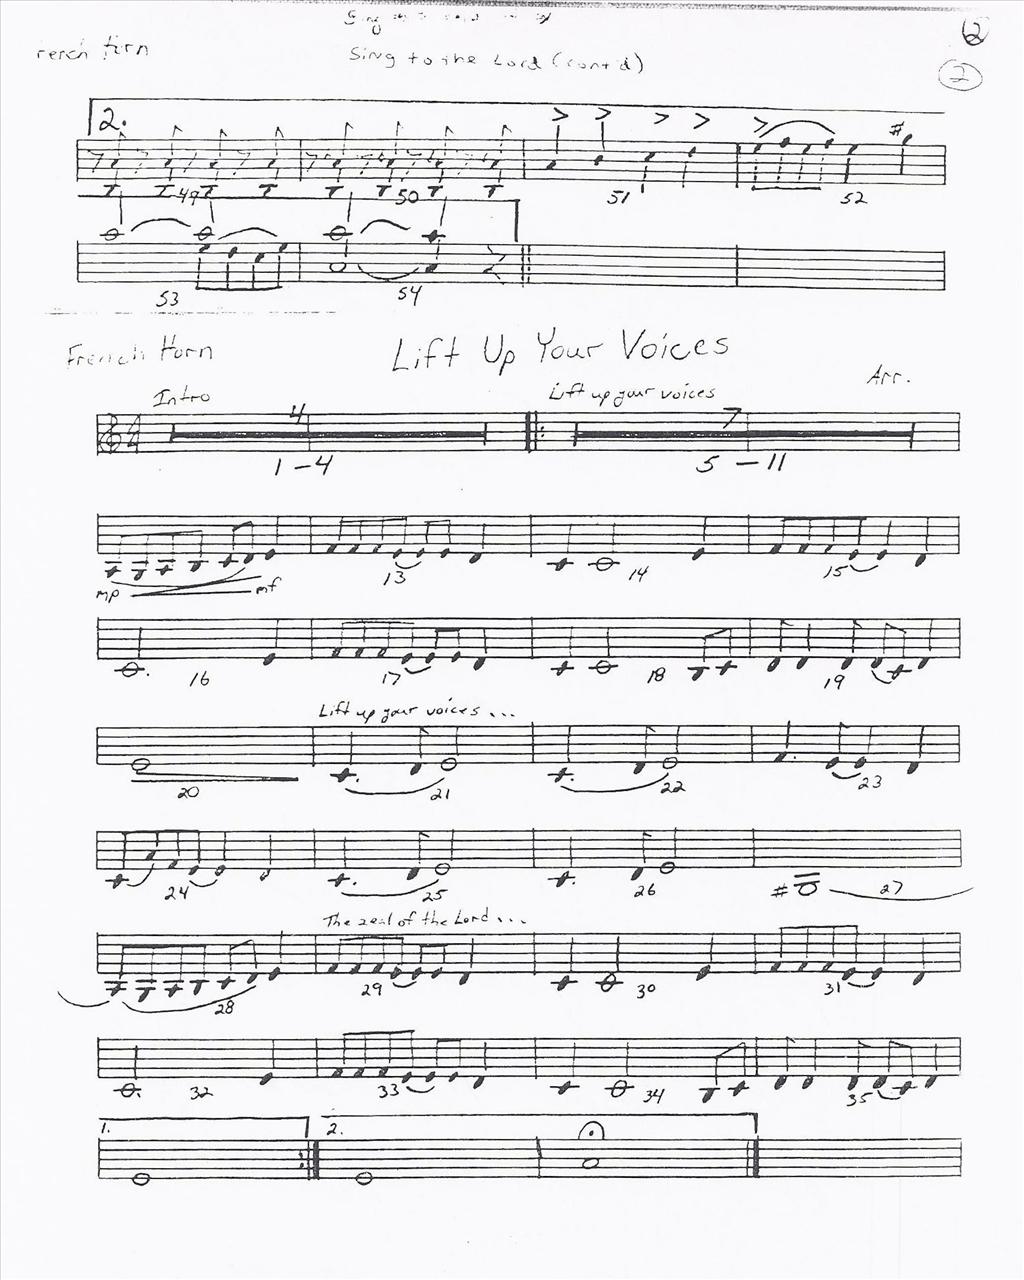 Sing
2
French Horn
Sing to the Lord (cont'd)
2
2.
49 50 51 52
53 54
French Horn
Lift Up Your Voices
Arr.
Intro
Lift up your voices
4 7
1-4 5-11
mp mf 13 14 15
16 17 18 19
Lift up your voices...
20 21 22 23
24 25 26 27
The zeal of the Lord...
28 29 30 31
32 33 34 35
1. 2.